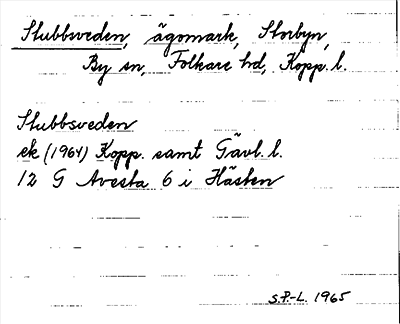 Stubbsveden, ägomark, Storbyn,
By sn, Folkare hd, Kopp. l.
Stubbsveden
ek (1964) Kopp. samt Gävl. l.
12 G Avesta 6 i Hästen
S.P.-L. 1965